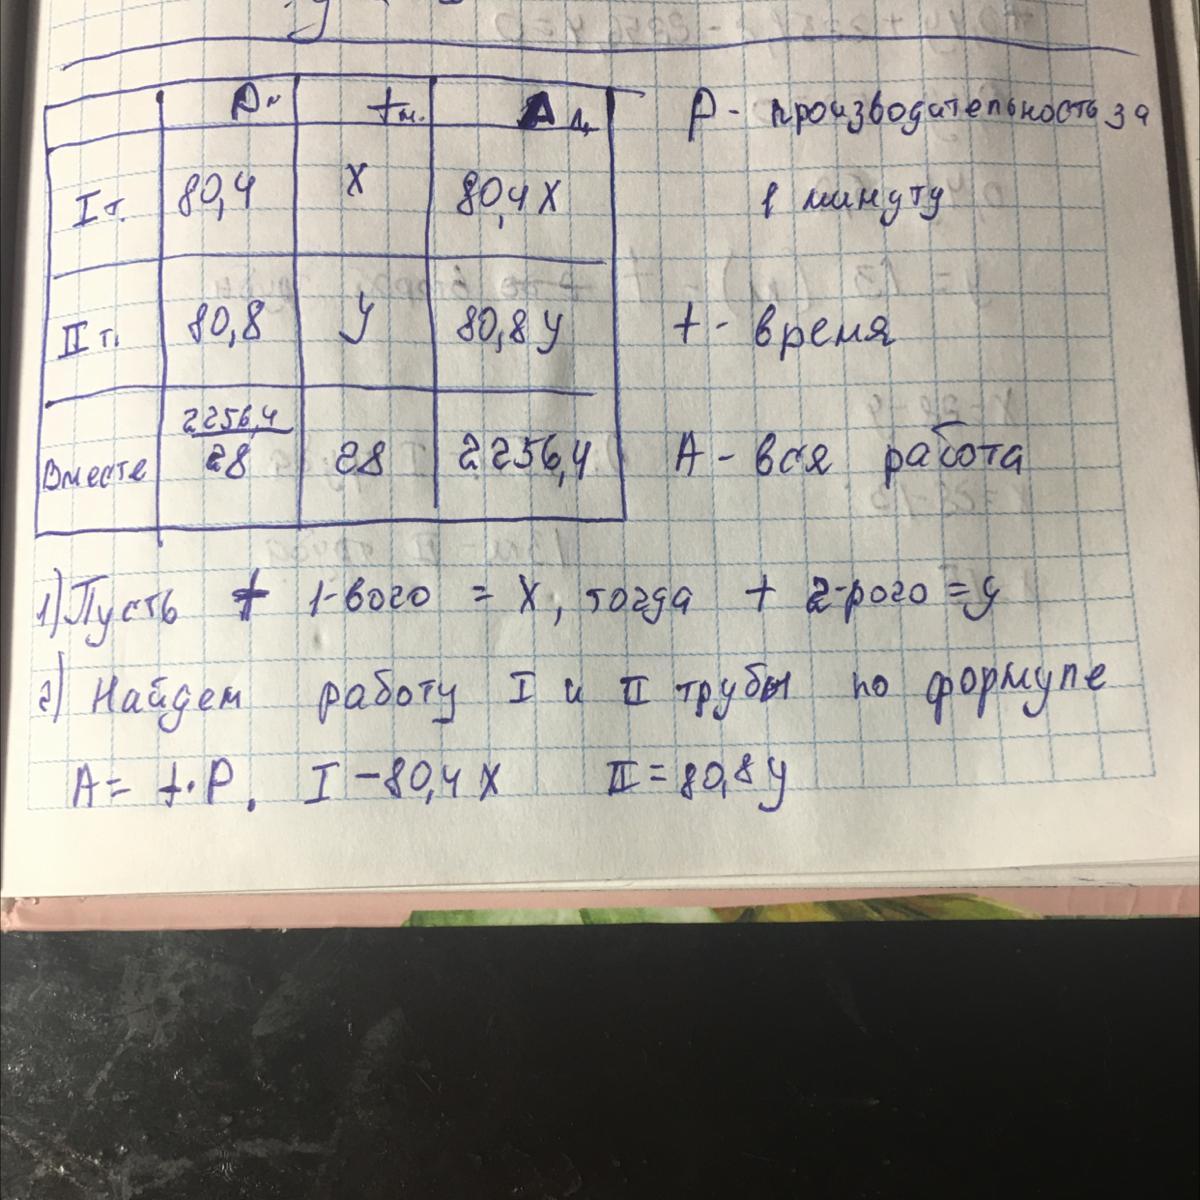 Pм tм. A л
P - производительность за
I т. 80,4 x 80,4x
1 минуту
II т. 80,8 y 80,8y
t - время
Вместе 2256,4/28 28 2256,4
A - вся работа
1) Пусть t 1-вого = x, тогда t 2-рого = y
2) Найдем работу I и II трубы по формуле
A = t·P. I - 80,4x II = 80,8y